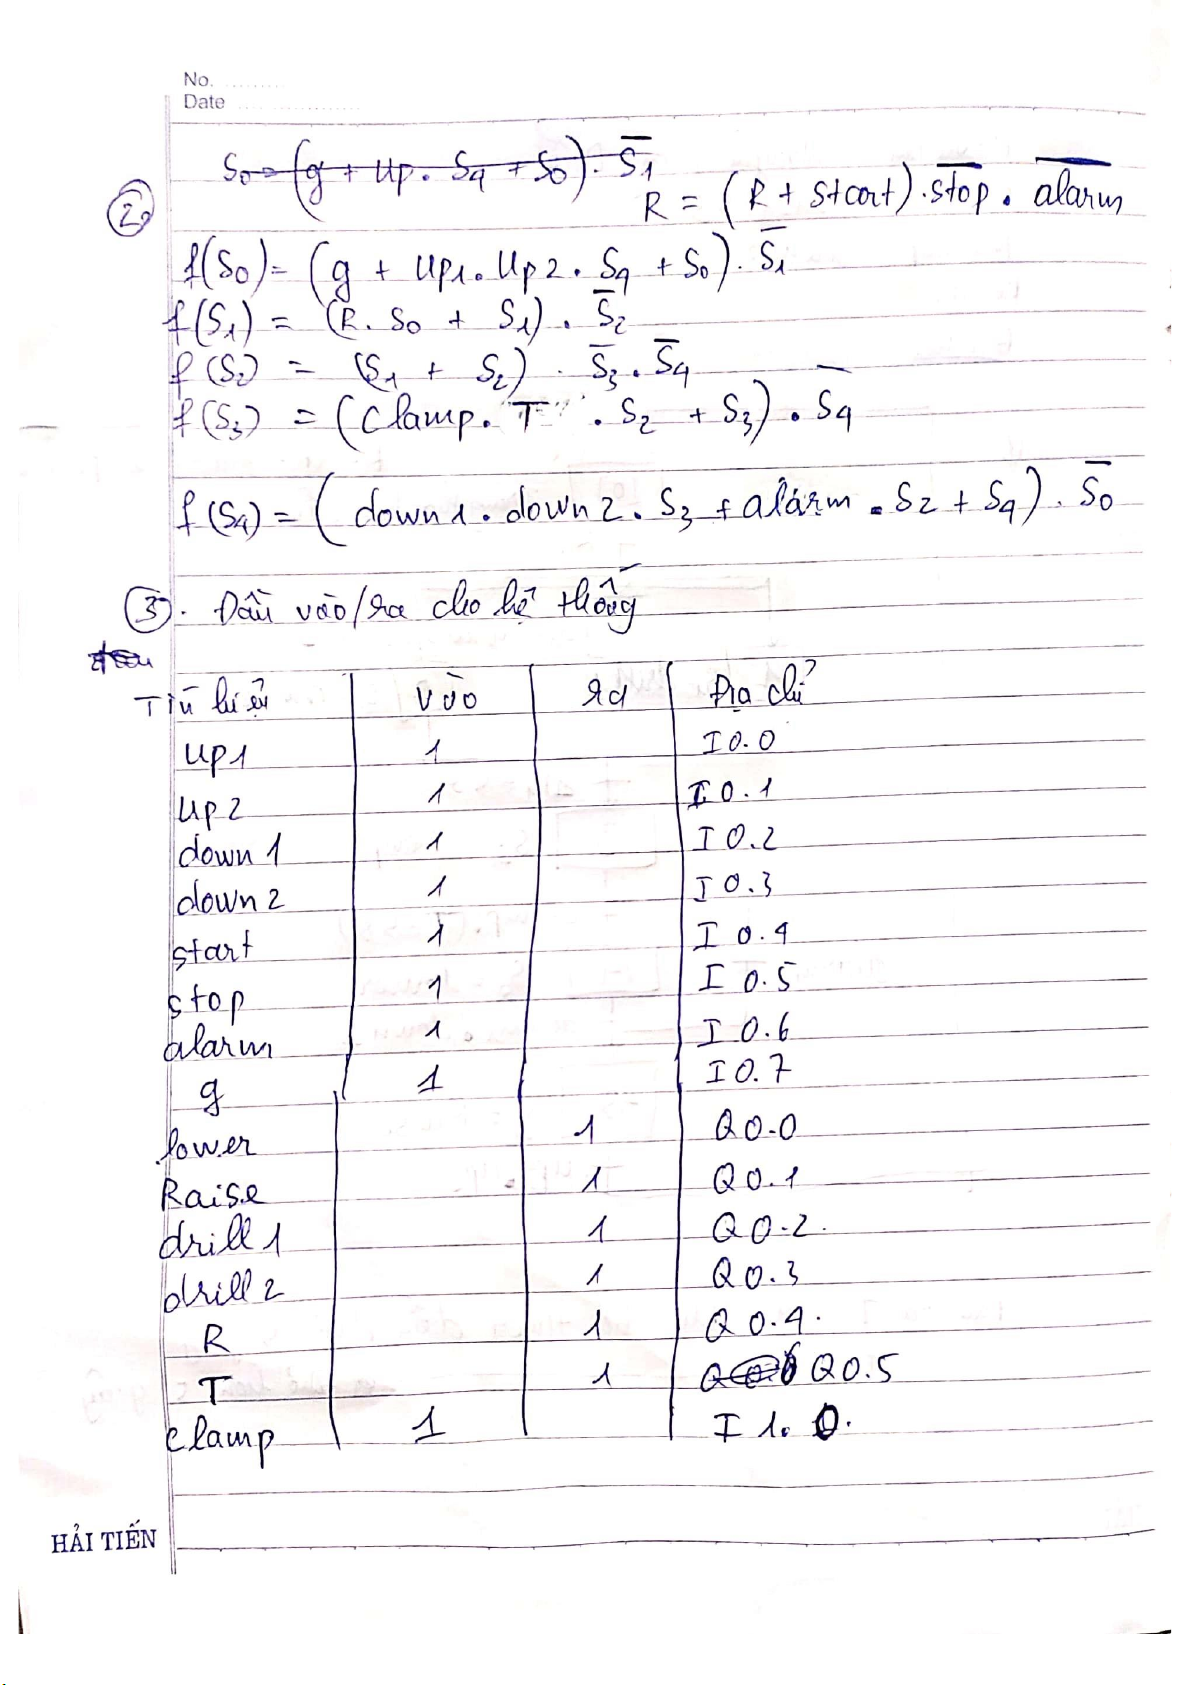 No. ..........
Date ....................
S0 = (g + up. S4 + S0). S̅1̅
2. R = (R + start). s̅t̅o̅p̅ . a̅l̅a̅r̅m̅
f(S0) = (g + up1. up2. S4 + S0). S̅1
f(S1) = (R. S0 + S1). S̅2
f(S2) = (S1 + S2) . S̅3. S̅4
f(S3) = (Clamp. T . S2 + S3). S̅4
f(S4) = (down1. down2. S3 + alarm . S2 + S4). S̅0
3. Đầu vào/ra cho hệ thống
Tín hiệu vào ra Địa chỉ
up1 1 I0.0
up2 1 I0.1
down1 1 I0.2
down2 1 I0.3
start 1 I0.4
stop 1 I0.5
alarm 1 I0.6
g 1 I0.7
lower 1 Q0.0
Raise 1 Q0.1
drill1 1 Q0.2.
drill2 1 Q0.3
R 1 Q0.4.
T 1 Q0.5
clamp 1 I1.0.
HẢI TIẾN